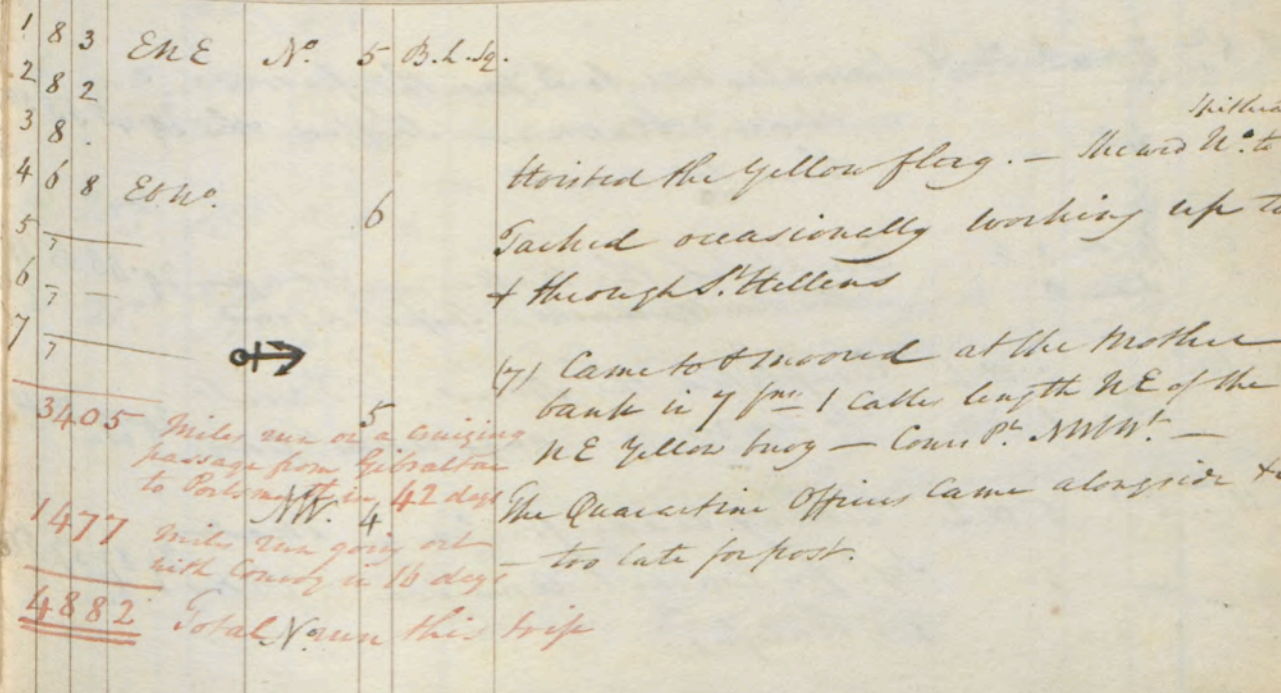 1 8 3 ENE No. 5 B.h.Sq.
2 8 2
3 8 .
Hoisted the Yellow flag. — Shewed No. to
4 6 8 EbNo. 6
Tacked occasionally working up to
5 7
& through St. Hellens
6 7
7 7
(7) Came to & moored at the Mother
bank in 7 fms 1 Cables length NE of the
5
NE Yellow buoy — Cows Pt. NWbWt. —
The Quarantine Officers Came alongside &
— too late for post.
NW. 4
No.
3405 Miles run on a Cruizing
passage from Gibraltar
to Portsmouth in 42 days
1477 Miles run going out
with Convoy in 16 days
4882 Total run this trip